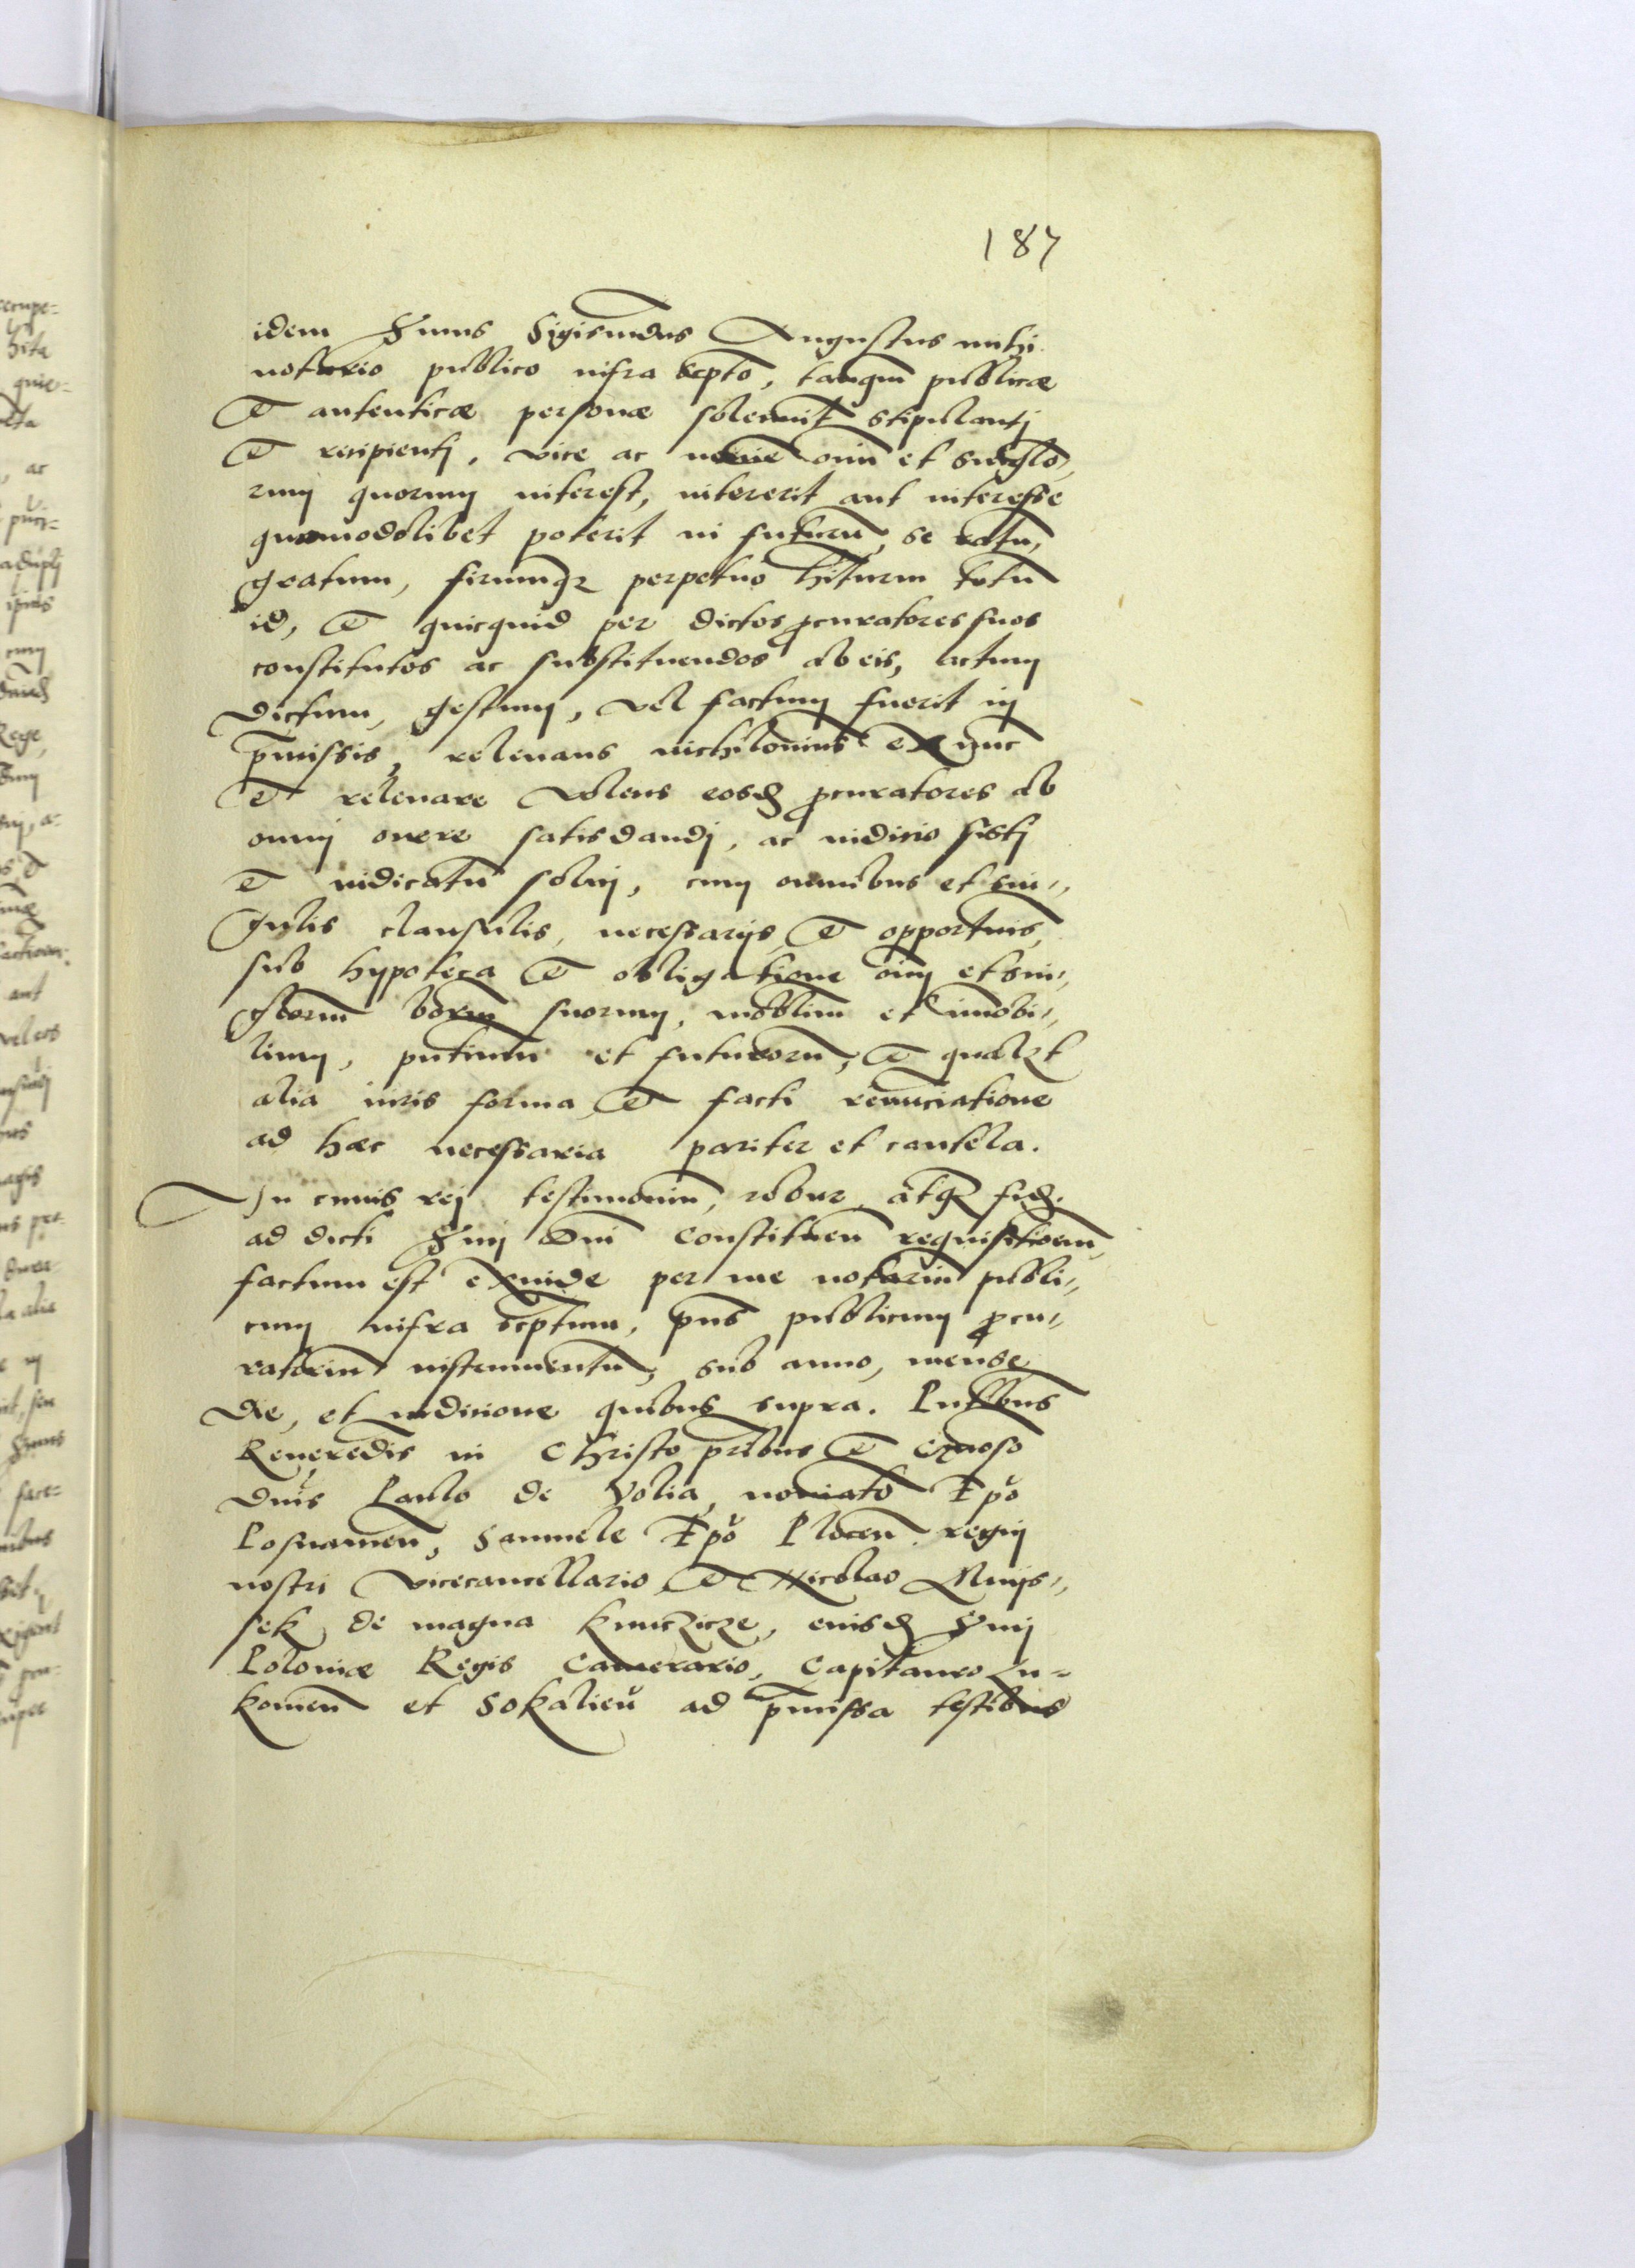 187
idem Sermus Sigismundus Augustus mihi
notario publico infra scpto, tanqm publicæ
et autenticæ personæ solemnit stipulantj
et recipientj, vice ac nomine oim et singlo,,
rum quorum interest, intererit aut interesse
quomodolibet poterit in futuru, se ratu,
gratum, firmumq perpetuo hiturm totu
id, et quicquid per dictos pcuratores suos
constitutos ac substituendos ab eis, actum
dictum, gestum, vel factum fuerit in
pmissis, relevans nichilominus ex nunc
et relevare volens eosd pcuratores ab
omnj onere satisdandj, ac iudicio sistj
et iudicatu solvj, cum omnibus et sin,,
gulis clausulis, necessarijs et opportunis,
sub hypoteca et obligatione oim et sin,,
glorum bonorum suorum, mobilium et immobi,,
lium, pntium et futurorum, et qualzt
alia iuris forma et facti renunciatione
ad hæc necessaria pariter et cautela.
In cuius rej testimonium, robur, atq fid
ad dicti Sermj Dni Constituen requisitionem,
factum est exinde per me notarium publi,,
cum infra scptum, pns publicum pcu,,
ratorium instrumentu, sub anno, mense
die, et indicione quibus supra. Pntibus
Reverendis in Christo pribus et Gnoso
Dnis Paulo de Volia, nominato Epo
Posnanien, Samuele Epo Plocen. regnj
nostri Vicecancellario et Nicolao Mnijs,,
sek de magna Kunczicze, eiusd Sermj
Poloniæ Regis Camerario, Capitaneo Lu=
komen et Sokalien ad pmissa testibus